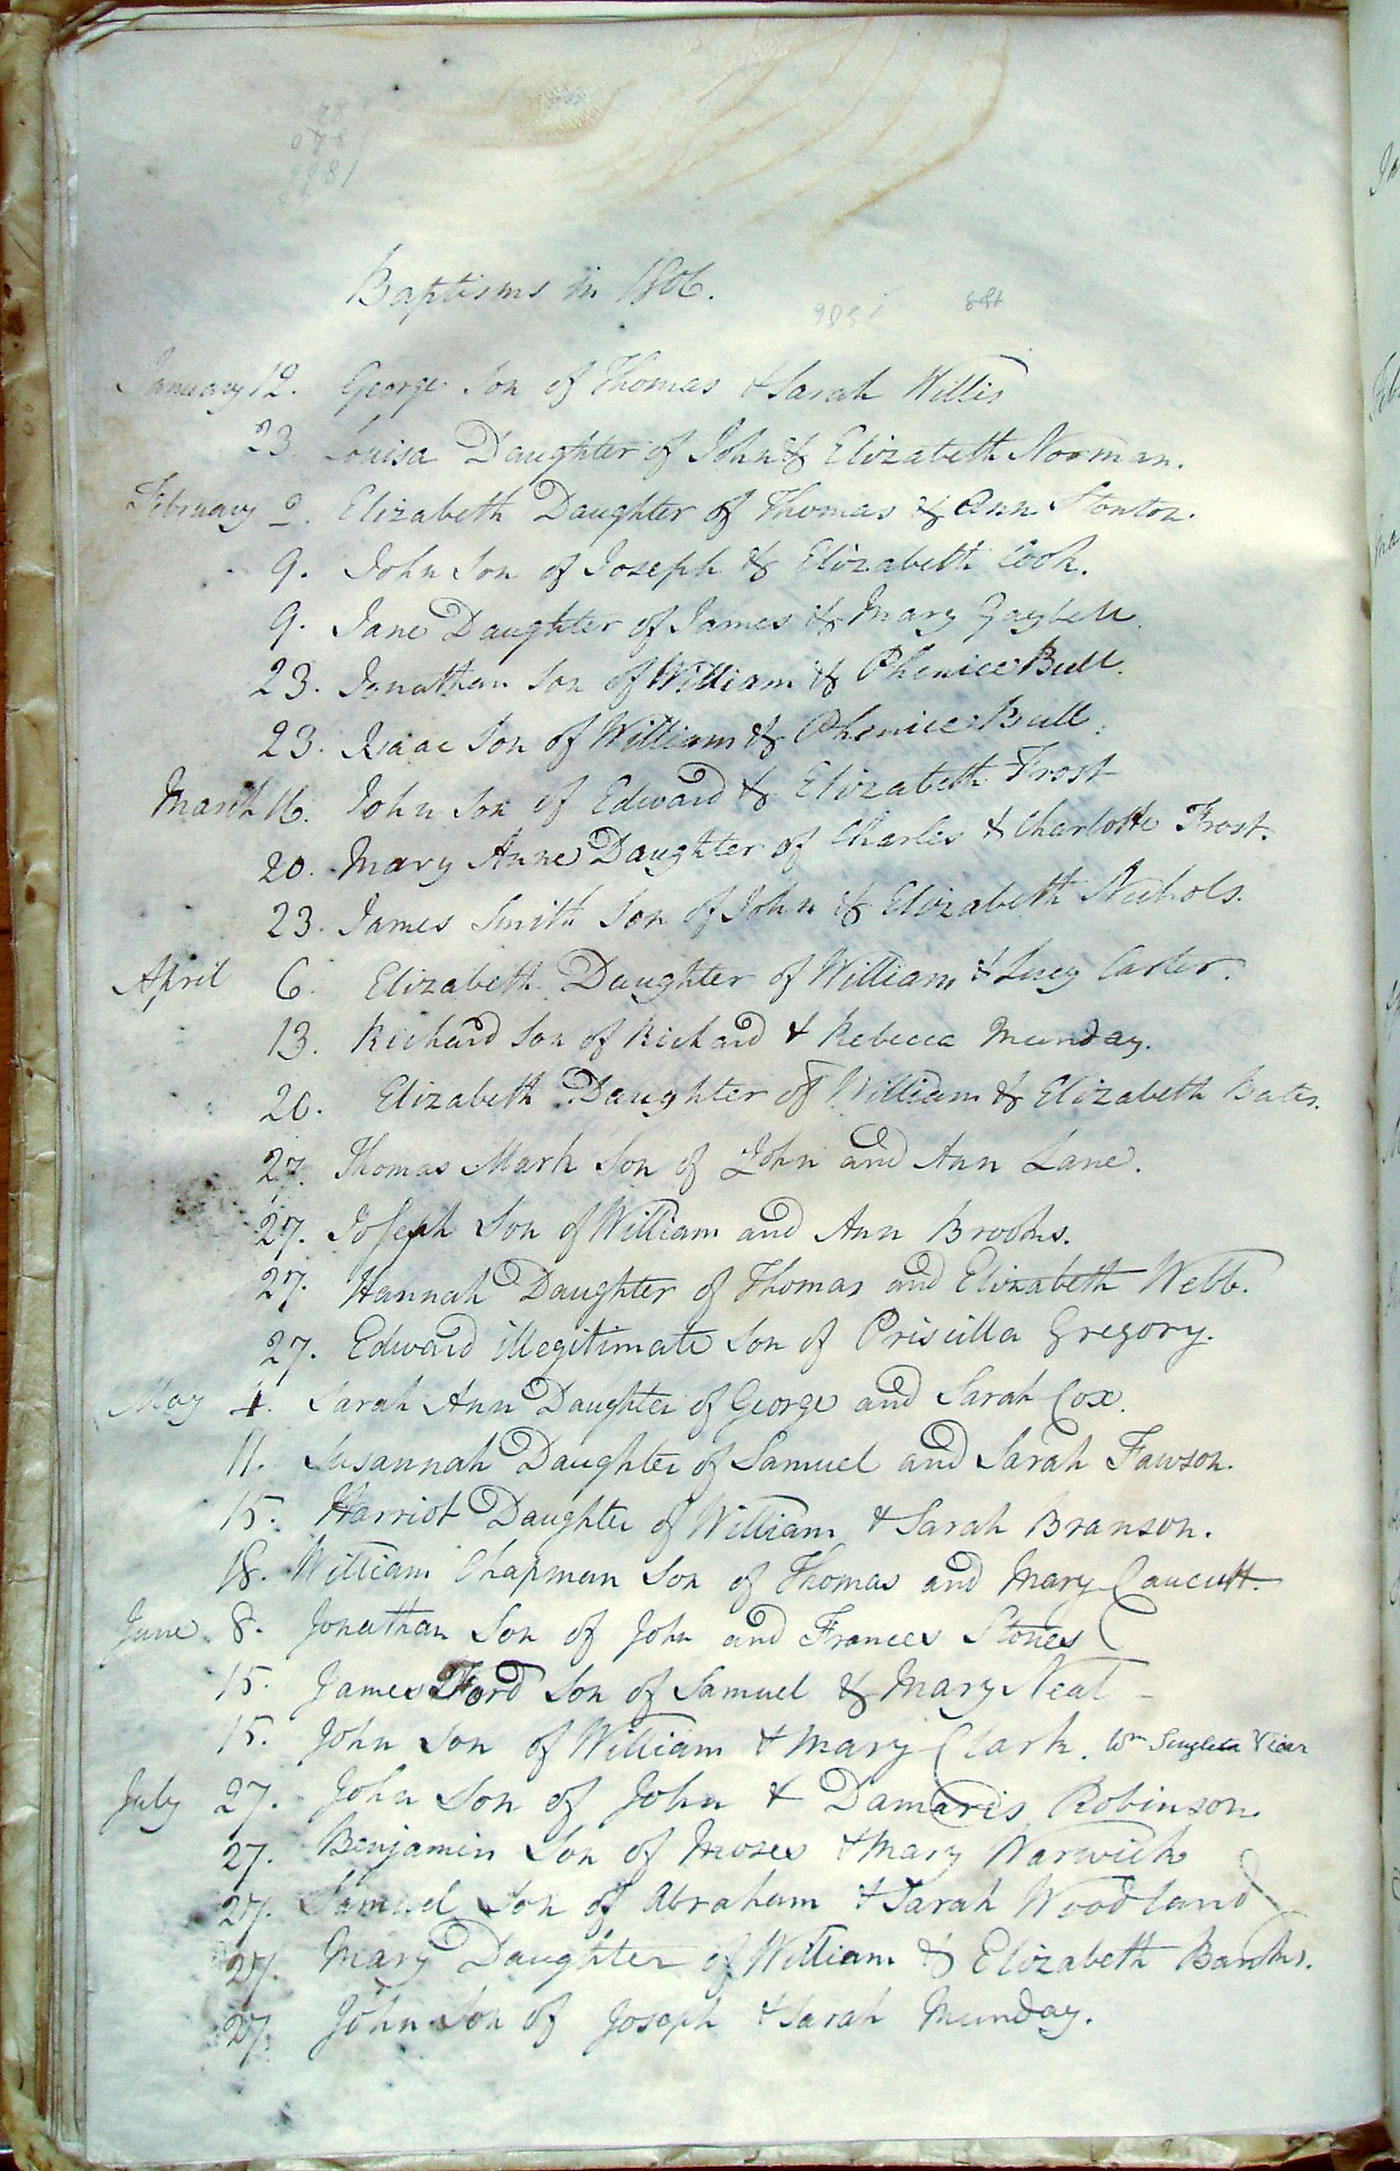 Baptisms in 1806.
January 12. George Son of Thomas & Sarah Willis
23 Louisa Daughter of John & Elizabeth Norman.
February 2. Elizabeth Daughter of Thomas & Ann Stonton.
9. John Son of Joseph & Elizabeth Cook.
9. Jane Daughter of James & Mary Gaybell.
23. Jonathan Son of William & Phenice Bull.
23. Isaac Son of William & Phenice Bull.
March 16. John Son of Edward & Elizabeth Frost
20. Mary Anne Daughter of Charles & Charlotte Frost.
23. James Smith Son of John & Elizabeth Nichols.
April 6. Elizabeth Daughter of William & Lucy Carter.
13. Richard Son of Richard & Rebecca Munday.
20. Elizabeth Daughter of William & Elizabeth Bates.
27. Thomas Mark Son of John and Ann Lane.
27. Joseph Son of William and Ann Brooks.
27. Hannah Daughter of Thomas and Elizabeth Webb.
27. Edward illegitimate Son of Priscilla Gregory.
May 4. Sarah Ann Daughter of George and Sarah Cox.
11. Susannah Daughter of Samuel and Sarah Fawson.
15. Harriot Daughter of William & Sarah Branson.
18. William Chapman Son of Thomas and Mary Caucutt.
June 8. Jonathan Son of John and Frances Stones
15. James Ford Son of Samuel & Mary Neal
15. John Son of William & Mary Clark. Wm Vicar
July 27. John Son of John & Damaris Robinson.
27. Benjamin Son of Moses & Mary Warwick
27. Samuel Son of Abraham & Sarah Woodland
27. Mary Daughter of William & Elizabeth Banks.
27. John Son of Joseph & Sarah Munday.